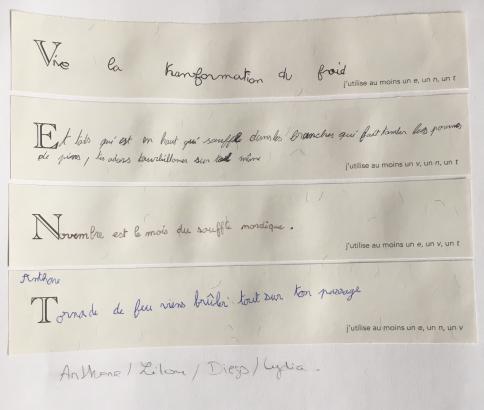 Vive la transformation du froid
j'utilise au moins un e, un n, un t
Et toi qui est en haut qui souffle dans les branches qui fait tomber les pommes
de pins, tu adores tourbilloner sur toi même
j'utilise au moins un v, un n, un t
Novembre est le mois du souffle nordique.
j'utilise au moins un e, un v, un t
Anthone
Tornade de feu viens brûler tout sur ton passage
j'utilise au moins un e, un n, un v
Anthone / / Diego / Lydia.